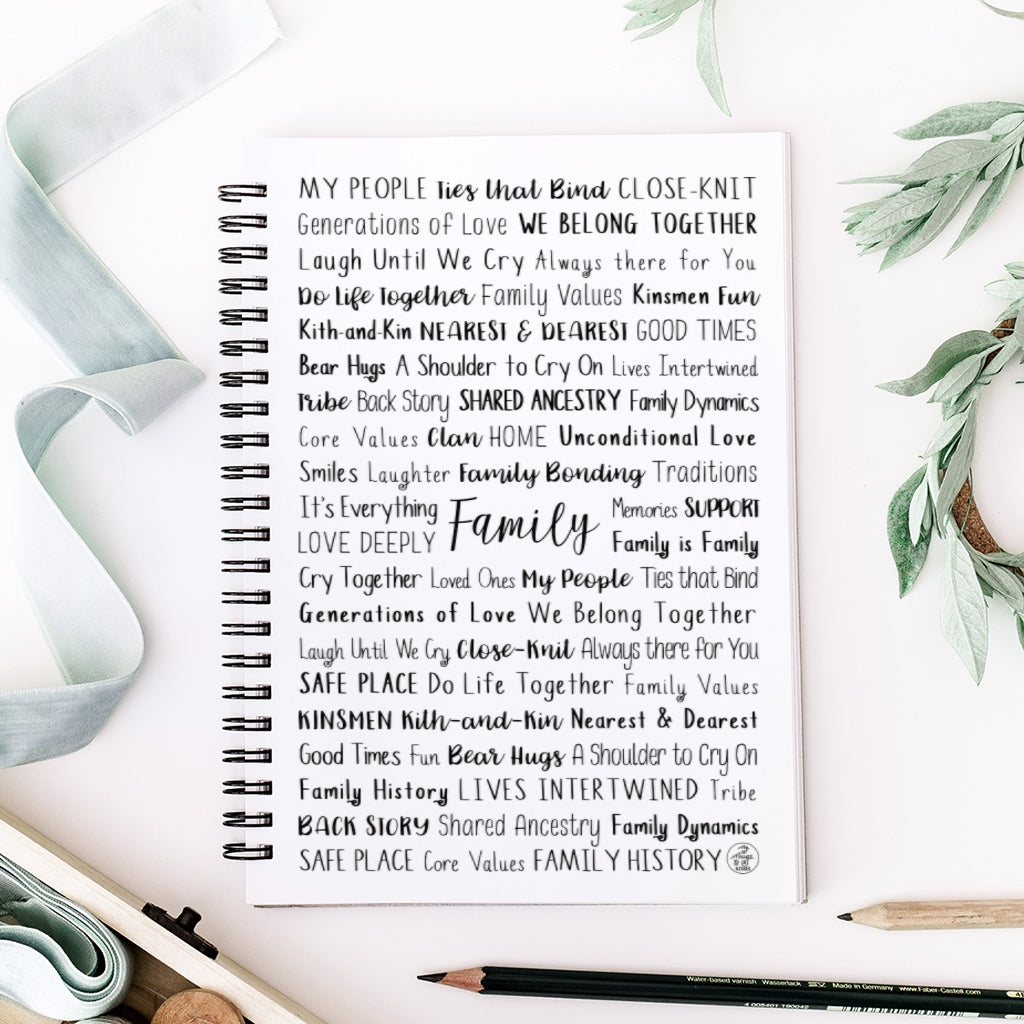 MY PEOPLE Ties that Bind CLOSE-KNIT
Generations of Love WE BELONG TOGETHER
Laugh Until We Cry Always there for You
Do Life Together Family Values Kinsmen Fun
Kith-and-Kin NEAREST & DEAREST GOOD TIMES
Bear Hugs A Shoulder to Cry On Lives Intertwined
Tribe Back Story SHARED ANCESTRY Family Dynamics
Core Values Clan HOME Unconditional Love
Smiles Laughter Family Bonding Traditions
It's Everything Family Memories SUPPORT
LOVE DEEPLY Family is Family
Cry Together Loved Ones My People Ties that Bind
Generations of Love We Belong Together
Laugh Until We Cry Close-Knit Always there for You
SAFE PLACE Do Life Together Family Values
KINSMEN Kith-and-Kin Nearest & Dearest
Good Times Fun Bear Hugs A Shoulder to Cry On
Family History LIVES INTERTWINED Tribe
BACK STORY Shared Ancestry Family Dynamics
SAFE PLACE Core Values FAMILY HISTORY
Water-based varnish Wasserlack Made in Germany www.Faber-Castell.com
4 005401 190042